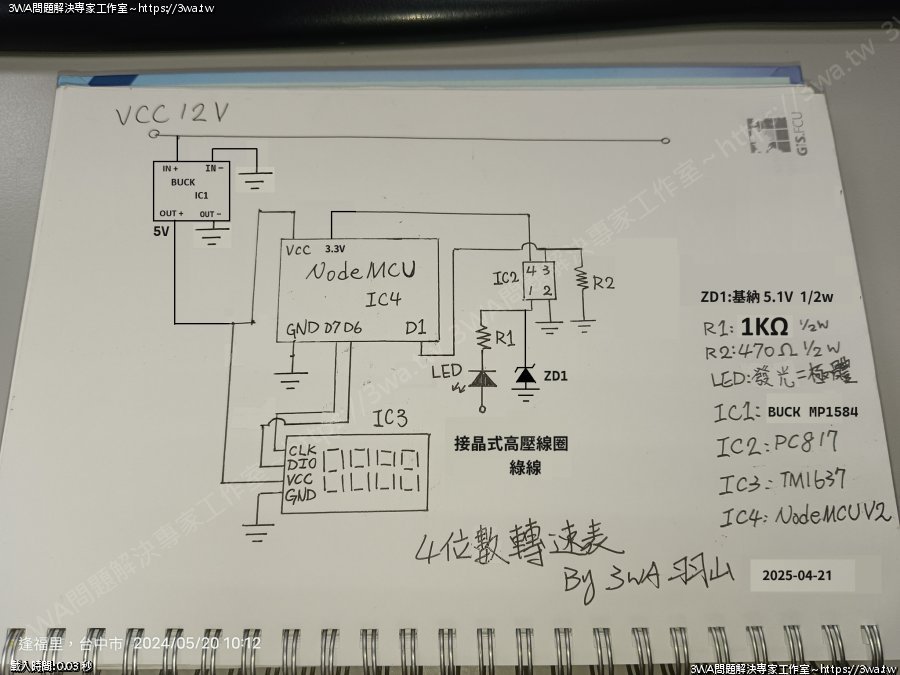 3WA問題解決專家工作室~https://3wa.tw
VCC 12V
GIS.FCU
IN+ IN-
BUCK
IC1
OUT+ OUT-
5V
VCC 3.3V
NodeMCU
IC4
GND D7 D6 D1
IC2
4 3
1 2
R2
R1
LED
ZD1
IC3
CLK
DIO
VCC
GND
接晶式高壓線圈
綠線
ZD1:基納 5.1V 1/2w
R1: 1KΩ 1/2W
R2:470Ω 1/2W
LED:發光二極體
IC1: BUCK MP1584
IC2:PC817
IC3:TM1637
IC4:NodeMCU V2
4位數轉速表
By 3WA 羽山
2025-04-21
逢福里,台中市 2024/05/20 10:12
載入時間:0.03 秒
3WA問題解決專家工作室~https://3wa.tw